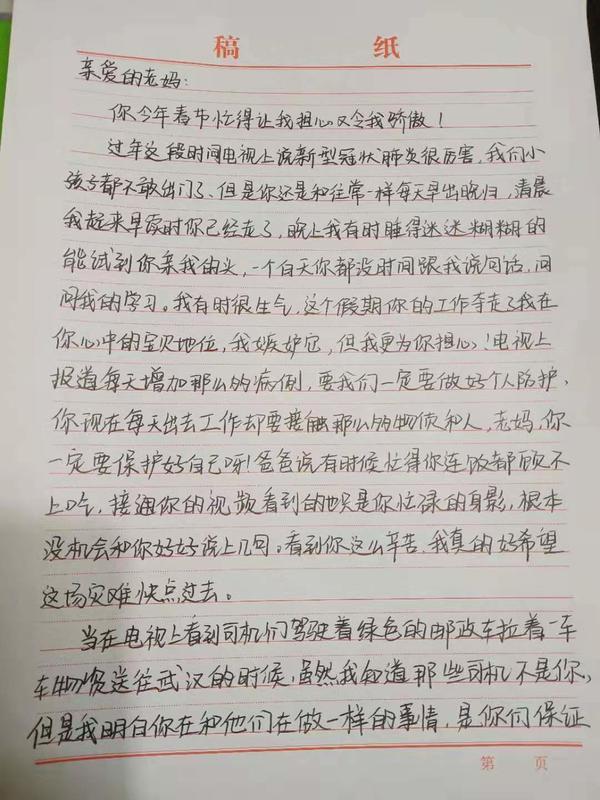 稿 纸
亲爱的老妈:
你今年春节忙得让我担心又令我骄傲!
过年这段时间电视上说新型冠状肺炎很厉害,我们小
孩子都不敢出门了、但是你还是和往常一样每天早出晚归,清晨
我起来早读时你已经走了,晚上我有时睡得迷迷糊糊的
能试到你亲我的头,一个白天你都没时间跟我说句话,问
问我的学习。我有时很生气,这个假期你的工作夺走了我在
你心中的宝贝地位,我嫉妒它,但我更为你担心!电视上
报道每天增加那么多的病例,要我们一定要做好个人防护,
你现在每天出去工作却要接触那么多的物资和人,老妈,你
一定要保护好自己呀!爸爸说有时候忙得你连饭都顾不
上吃,接通你的视频看到的也只是你忙碌的身影,根本
没机会和你好好说上几句。看到你这么辛苦,我真的好希望
这场灾难快点过去。
当在电视上看到司机们驾驶着绿色的邮政车拉着一车
车物资送往武汉的时候,虽然我知道那些司机不是你,
但是我明白你在和他们在做一样的事情,是你们保证
第 页